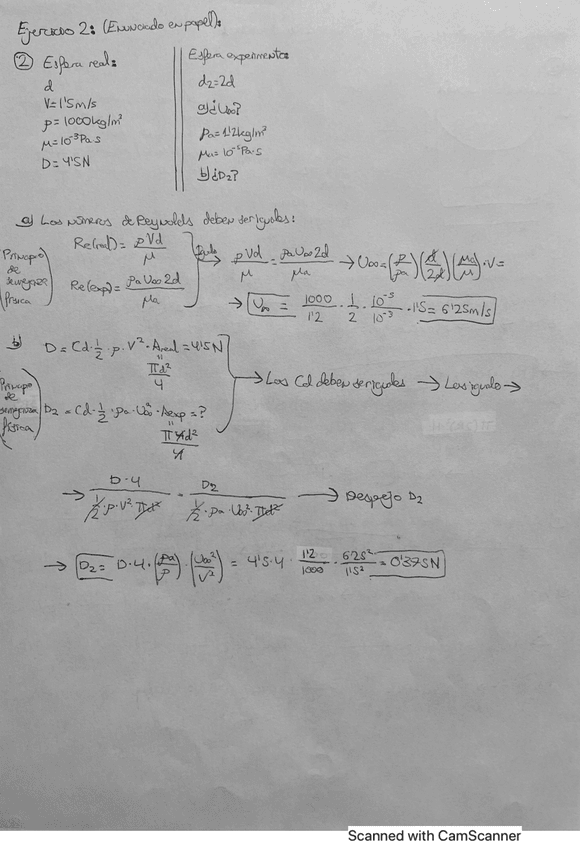 Ejercicio 2: (Enunciado en papel):
② Esfera real:
d
V=1'5m/s
ρ=1000kg/m²
μ=10⁻³Pa·s
D=4'5N
Esfera experimento:
d₂=2d
a) ¿U∞?
ρa=1'2kg/m²
μa=10⁻⁵Pa·s
b) ¿D₂?
a) Los números de Reynolds deben ser iguales:
Principio de semejanza física
Re(real)= ρVd/μ
Re(exp)= ρa U∞ 2d/μa
Igualo → ρVd/μ = ρa U∞ 2d/μa → U∞=(ρ/ρa)(d/2d)(μa/μ)·V=
→ U∞ = 1000/1'2 · 1/2 · 10⁻⁵/10⁻³ · 1'5 = 6'25m/s
b)
Principio de semejanza física
D = Cd·1/2·ρ·V²·Areal = 4'5N
πd²/4
D₂ = Cd·1/2·ρa·U∞²·Aexp = ?
π4d²/4
→ Los Cd deben ser iguales → Los igualo →
→ D·4 / 1/2·ρ·V²·πd² = D₂ / 1/2·ρa·U∞²·πd² → Despejo D₂
→ D₂= D·4·(ρa/ρ)·(U∞²/V²) = 4'5·4·1'2/1000·6'25²/1'5² = 0'375N
Scanned with CamScanner